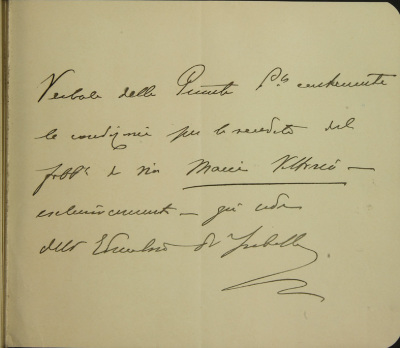 Verbale della Giunta P.le contenente
le condizioni per la vendita del
fabb.to di Via Maria Vittoria
esclusivamente - già sede
dell'